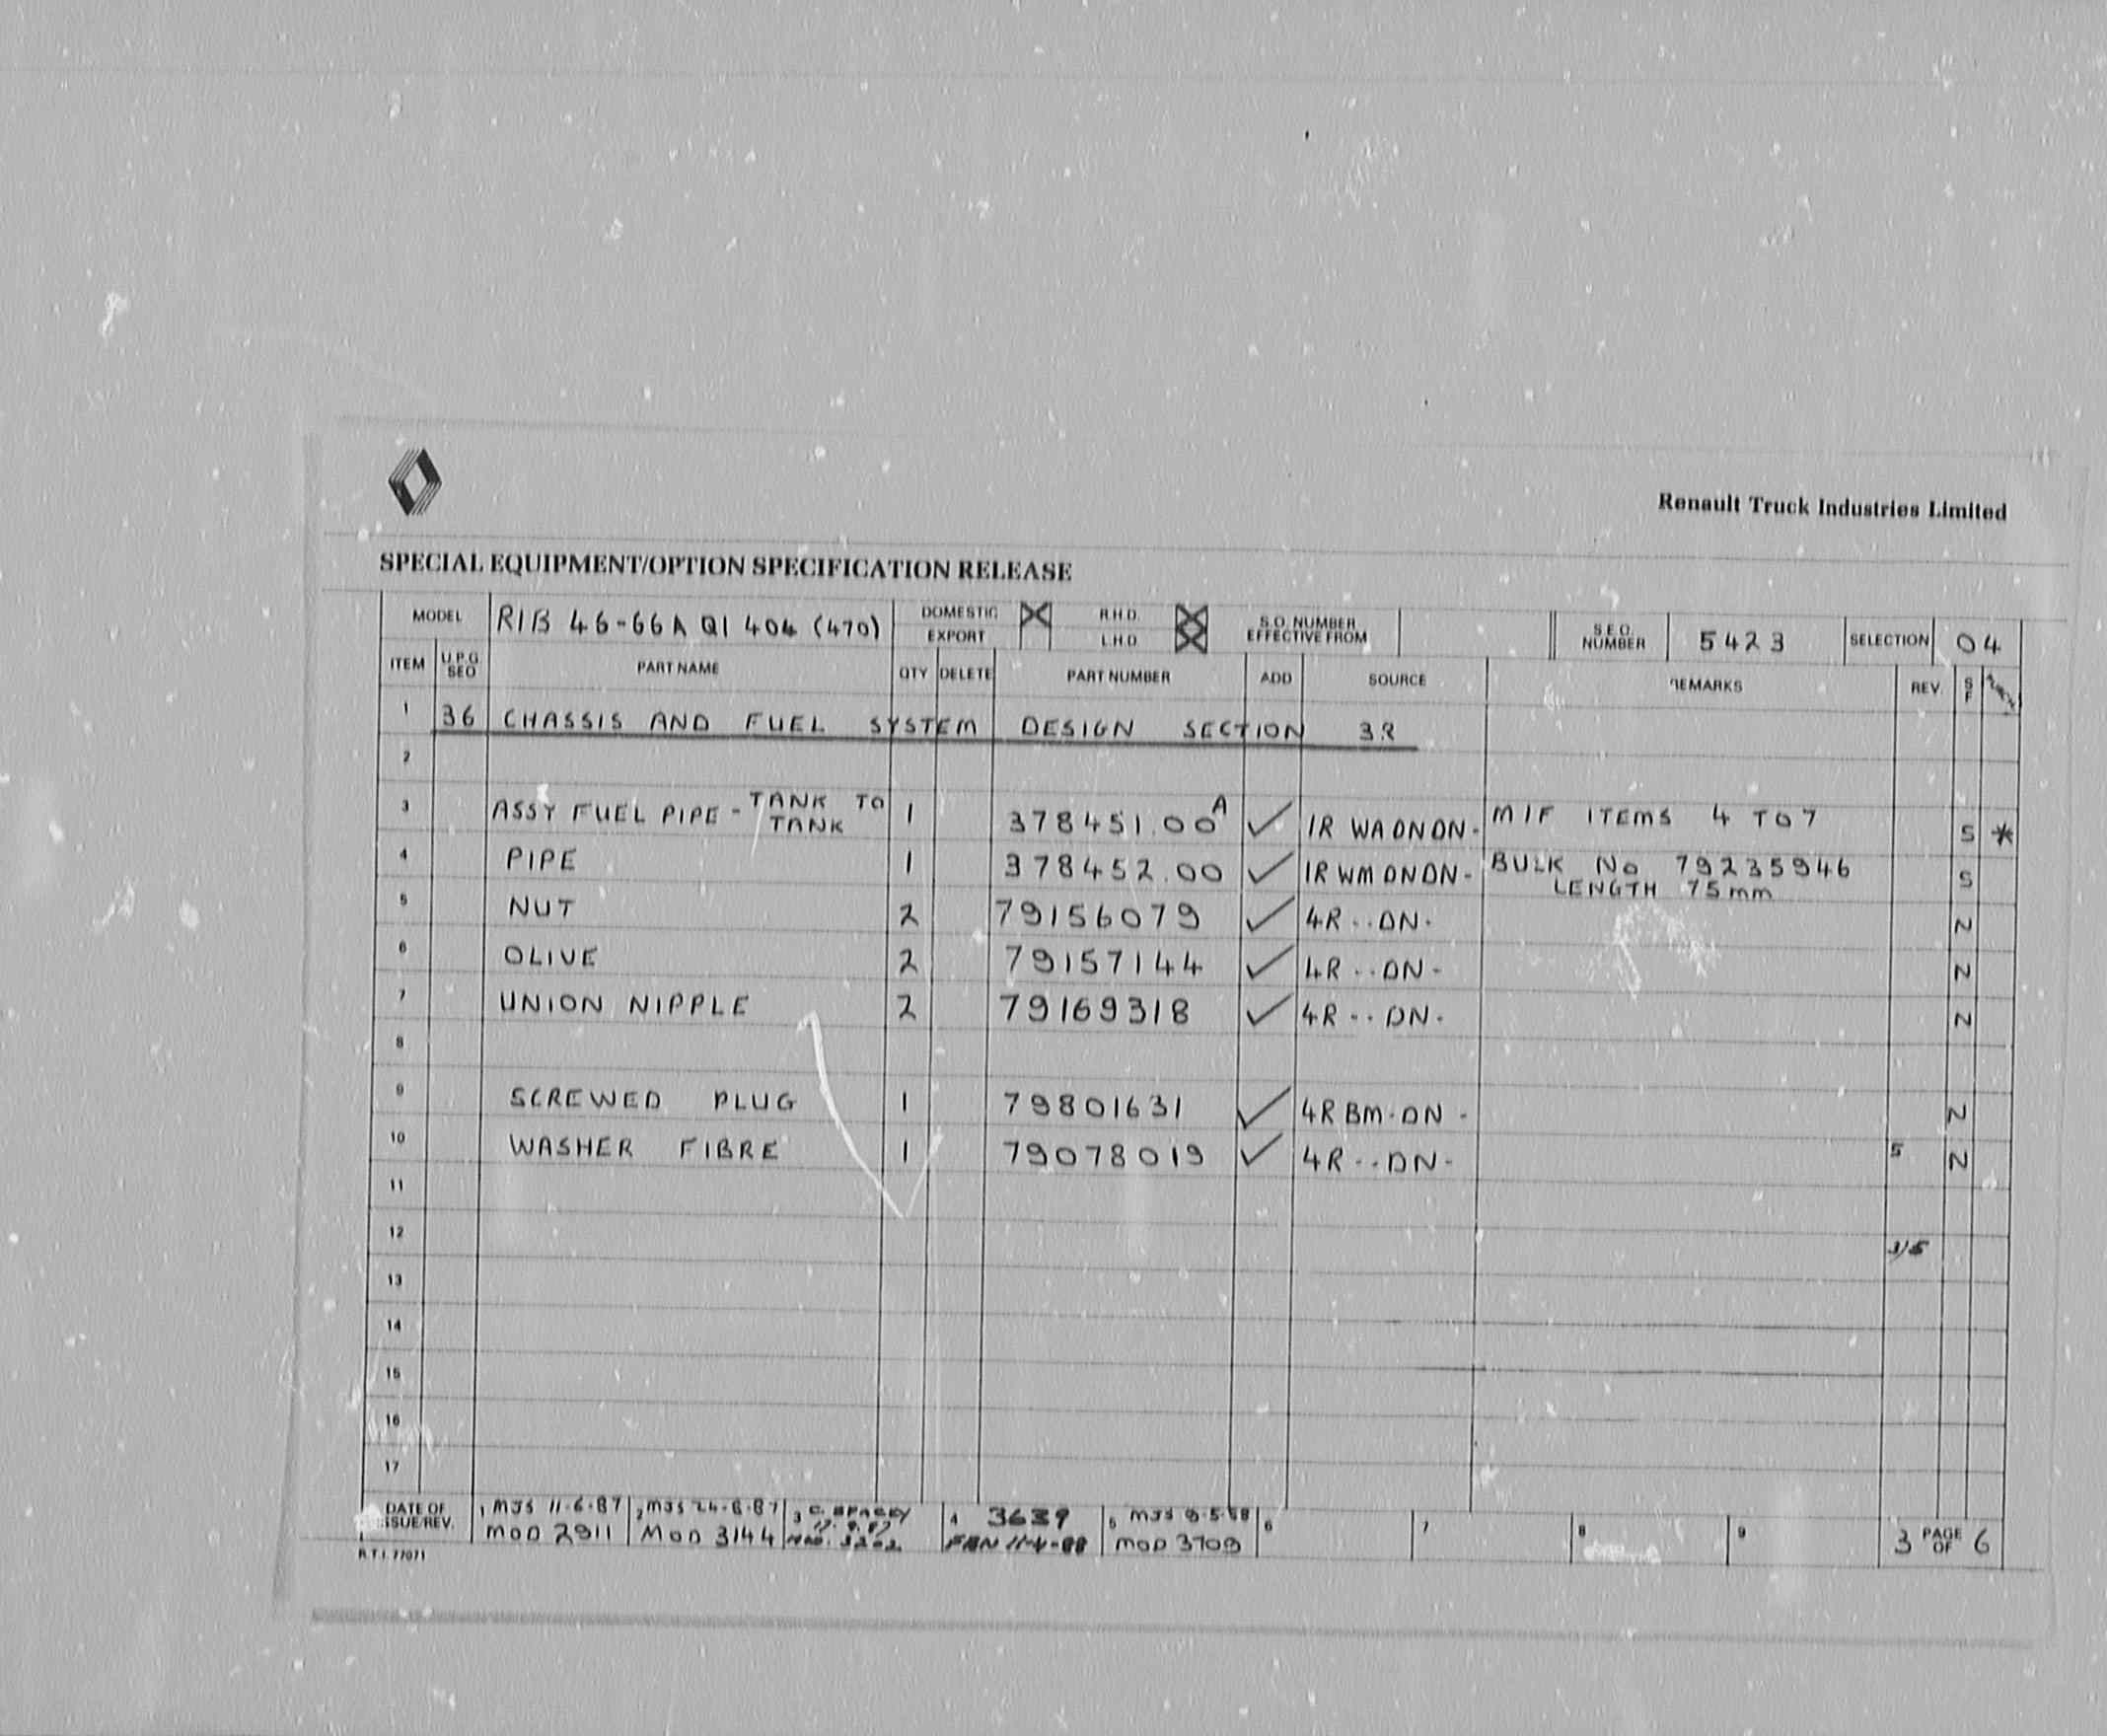 Renault Truck Industries Limited
SPECIAL EQUIPMENT/OPTION SPECIFICATION RELEASE
MODEL RIB 46-66A Q1 404 (470) DOMESTIC R.H.D. S.O. NUMBER EFFECTIVE FROM S.E.O. NUMBER 5423 SELECTION 04
EXPORT L.H.D.
ITEM U.P.G SEQ PART NAME QTY DELETE PART NUMBER ADD SOURCE REMARKS REV. S F
1 36 CHASSIS AND FUEL SYSTEM DESIGN SECTION 3R
2
3 ASSY FUEL PIPE - TANK TO TANK 1 378451.00A ✓ 1R WADNDN- MIF ITEMS 4 TO 7 S *
4 PIPE 1 378452.00 ✓ 1R WMDNDN- BULK No 79235946 S
LENGTH 75mm
5 NUT 2 79156079 ✓ 4R..DN. N
6 OLIVE 2 79157144 ✓ 4R..DN- N
7 UNION NIPPLE 2 79169318 ✓ 4R..DN. N
8
9 SCREWED PLUG 1 79801631 ✓ 4R BM.DN - N
10 WASHER FIBRE 1 79078019 ✓ 4R..DN- 5 N
11
12
13
14
15
16
17
DATE OF ISSUE/REV. 1 MJS 11.6.87 2 MJS 24.8.87 3 C. SPACEY 17.9.87 4 3639 5 MJS 9.5.88 6 7 8 9 3 PAGE OF 6
MOD 2911 MOD 3144 MOD. 3202 11-4-88 MOD 3709
R.T.I. 77071